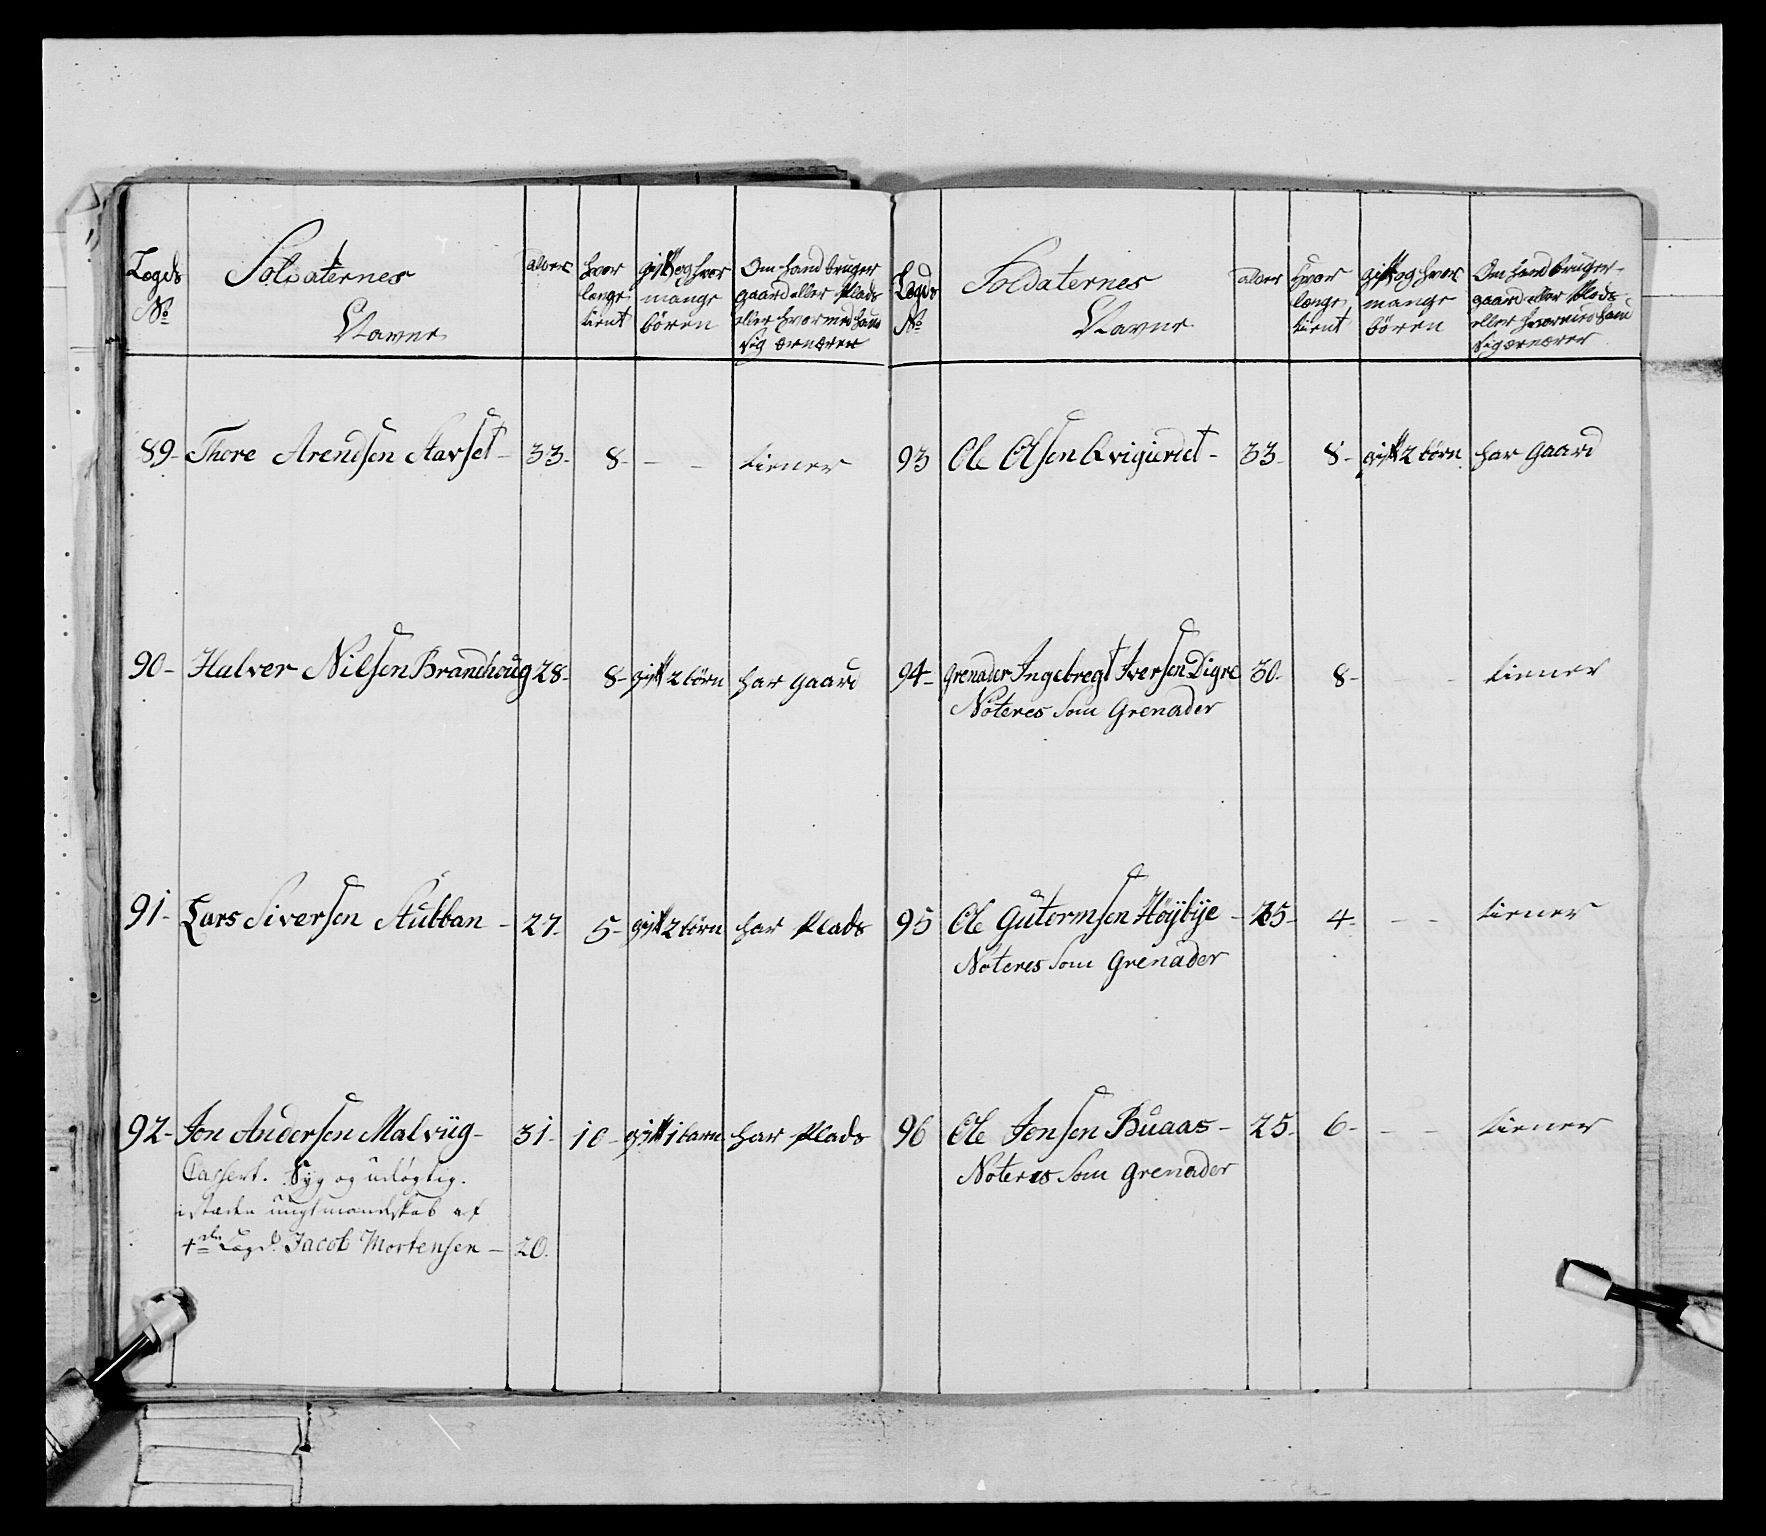 Legds Soldaternes alder hvor gift og hvor Om hand bruger
No Navne længe mange gaard eller Plads
tient börn eller hvormed hand
sig ernærer
89- Thore Arendsen Stavset- 33- 8- - - tiener
90- Halver Nilsen Brandhoug 28- 8- gift 2 börn har gaard
91- Lars Siversen Stubban - 27- 5- gift 2 börn har Plads
92- Jon Andersen Malvüg- 31- 10- gift 1 barn har Plads
Cassert. Syg og udögtig.
istæden ungt mandskab af
Lægd. Jacob Mortensen - 20.
Legds Soldaternes alder hvor gift og hvor Om hand bruger
No Navne længe mange gaard eller Plads
tient börn eller hvormed hand
sig ernærer
93 Ole Olsen - 33- 8- gift 2 börn har gaard
94- Grenader Ingebregt Iversen Digre 30- 8- - - tiener
Noteres som Grenader
95 Ole Gutormsen Höybye - 25- 4- - - tiener
Noteres som Grenader
96 Ole Jonsen Buaas- 25- 6- - - tiener
Noteres som Grenader